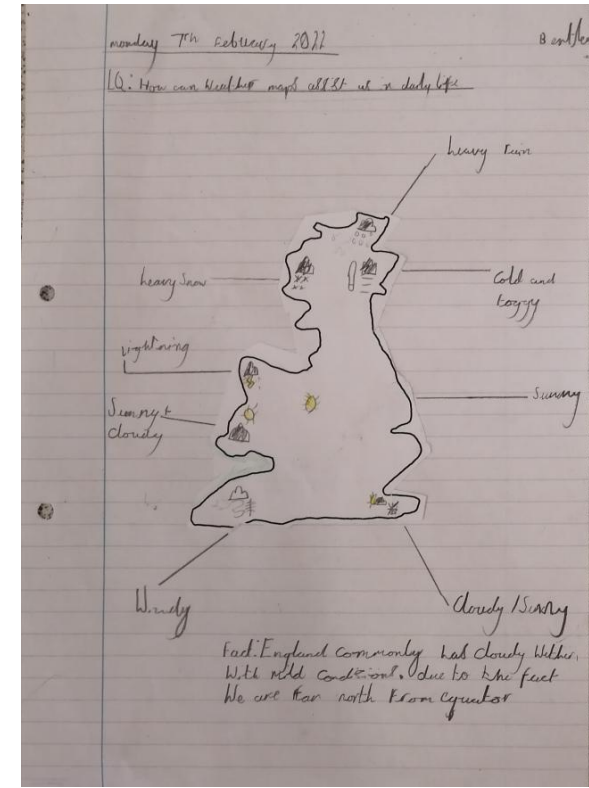 monday 7th February 2022
Bentley
LQ: How can Weather maps assist us in daily life
heavy Rain
heavy Snow
Cold and
foggy
Lightning
Sunny +
Cloudy
Sunny
Windy
Cloudy / Sunny
Fact: England commonly has cloudy Wether,
With mild conditions. due to the fact
We are north from equator